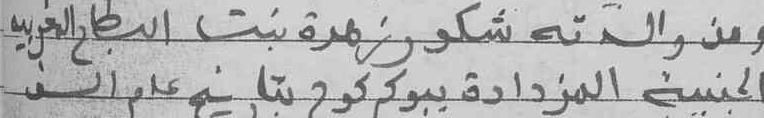 ومن والدته شكور زهرة بنت البطاح المغربية
الجنسية المزدادة ببوكركوح بتاريخ عام الف